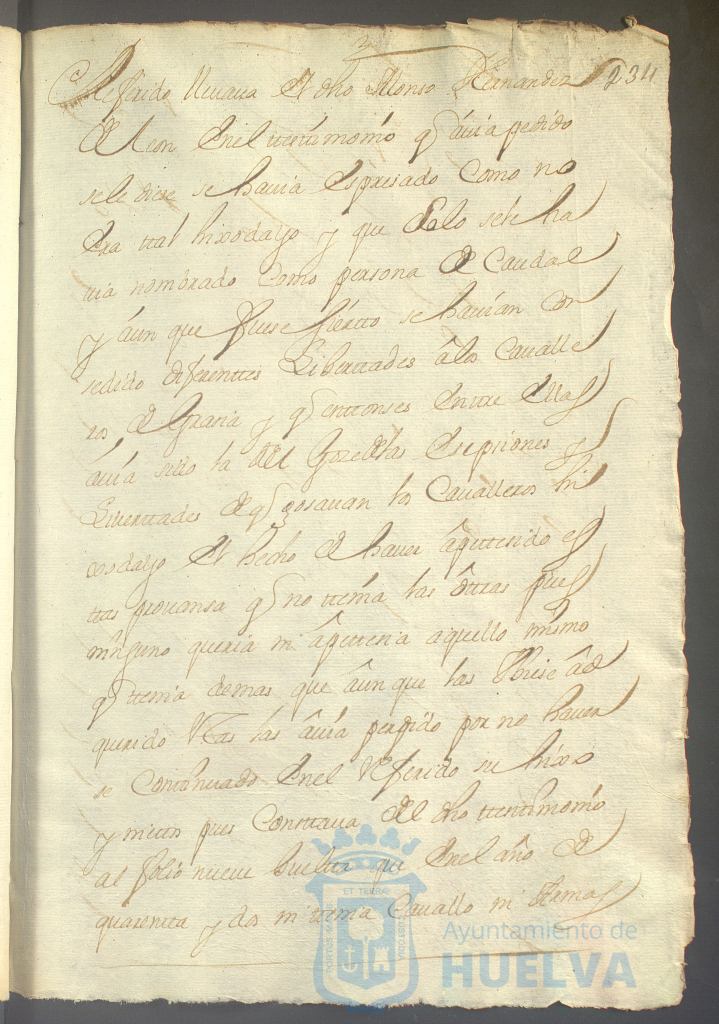 234
Referido Nicava el dho Alonso Hernandez
de Leon en el testimonio q avia pedido
se le diese se havia espresado como no
era tal hixodalgo y que solo se le ha
via nombrado como persona de Caudal
y aun que fuese sierto se havian con
sedido diferentes Libertades a los Cavalle
ros de Grasia y q enttonses entre ellas
avia sido la del goze de las esepsiones y
Livertades de q gosavan los Cavalleros hi
xosdalgo el hecho de haver apetesido es
tas provansa q no tenia las otras pues
ninguno queria ni apetesia aquello mismo
q tenia demas que aun que las huviese ad
querido el las avia perdido por no haver
se Continuado en el Referido su hixo
y nietos pues Constava del dho testimonio
al folio nueve buelta que en el año de
quarenta y dos ni tenia Cavallo ni Armas
ET TERRÆ
PORTUS MARIS
CUSTODIA
Ayuntamiento de
HUELVA